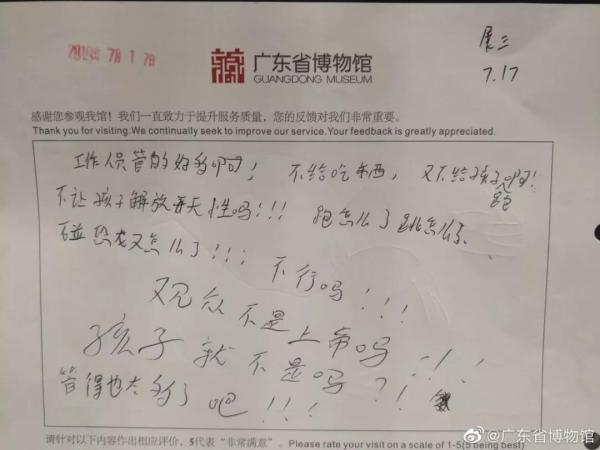 2019年7月17日
广东省博物馆
GUANGDONG MUSEUM
展三
7.17
感谢您参观我馆！我们一直致力于提升服务质量，您的反馈对我们非常重要。
Thank you for visiting.We continually seek to improve our service.Your feedback is greatly appreciated.
工作人员管的好多啊！不给吃东西，又不给孩子跑啊！
不让孩子解放天性吗！！！跑怎么了跳怎么了
碰恐龙又怎么了！！！不行吗！！！
观众不是上帝吗！！！
孩子就不是吗？！！
管得也太多了吧！！！
请针对以下内容作出相应评价，5代表“非常满意”。Please rate your visit on a scale of 1-5(5 being best)
@广东省博物馆